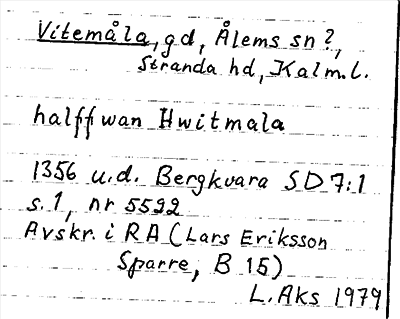 Vitemåla, gd, Ålems sn?,
Stranda hd, Kalm.l.
halff wan Hwitmala
1356 u.d. Bergkvara SD 7:1
s. 1, nr 5592
Avskr. i RA (Lars Eriksson
Sparre, B 15)
L.Aks 1979